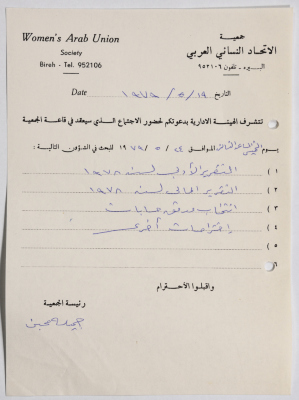 Women's Arab Union
Society
Bireh - Tel. 952106
جمعية
الاتحاد النسائي العربي
البيره ـ تلفون ٩٥٢١٠٦
Date ١٩٧٩/٥/١٩ التاريخ
تتشرف الهيئة الادارية بدعوتكم لحضور الاجتماع الذي سيعقد في قاعة الجمعية
يوم الخميس الموافق ٢٤ / ٥ / ١٩٧٩ للبحث في الشؤون التالية :
١ ) التقرير الأدبي لسنة ١٩٧٨
٢ ) التقرير المالي لسنة ١٩٧٨
٣ ) انتخاب مدقق حسابات
٤ ) إقتراحات أخرى
٥ )
٦ )
واقبلوا الاحترام
رئيسة الجمعية